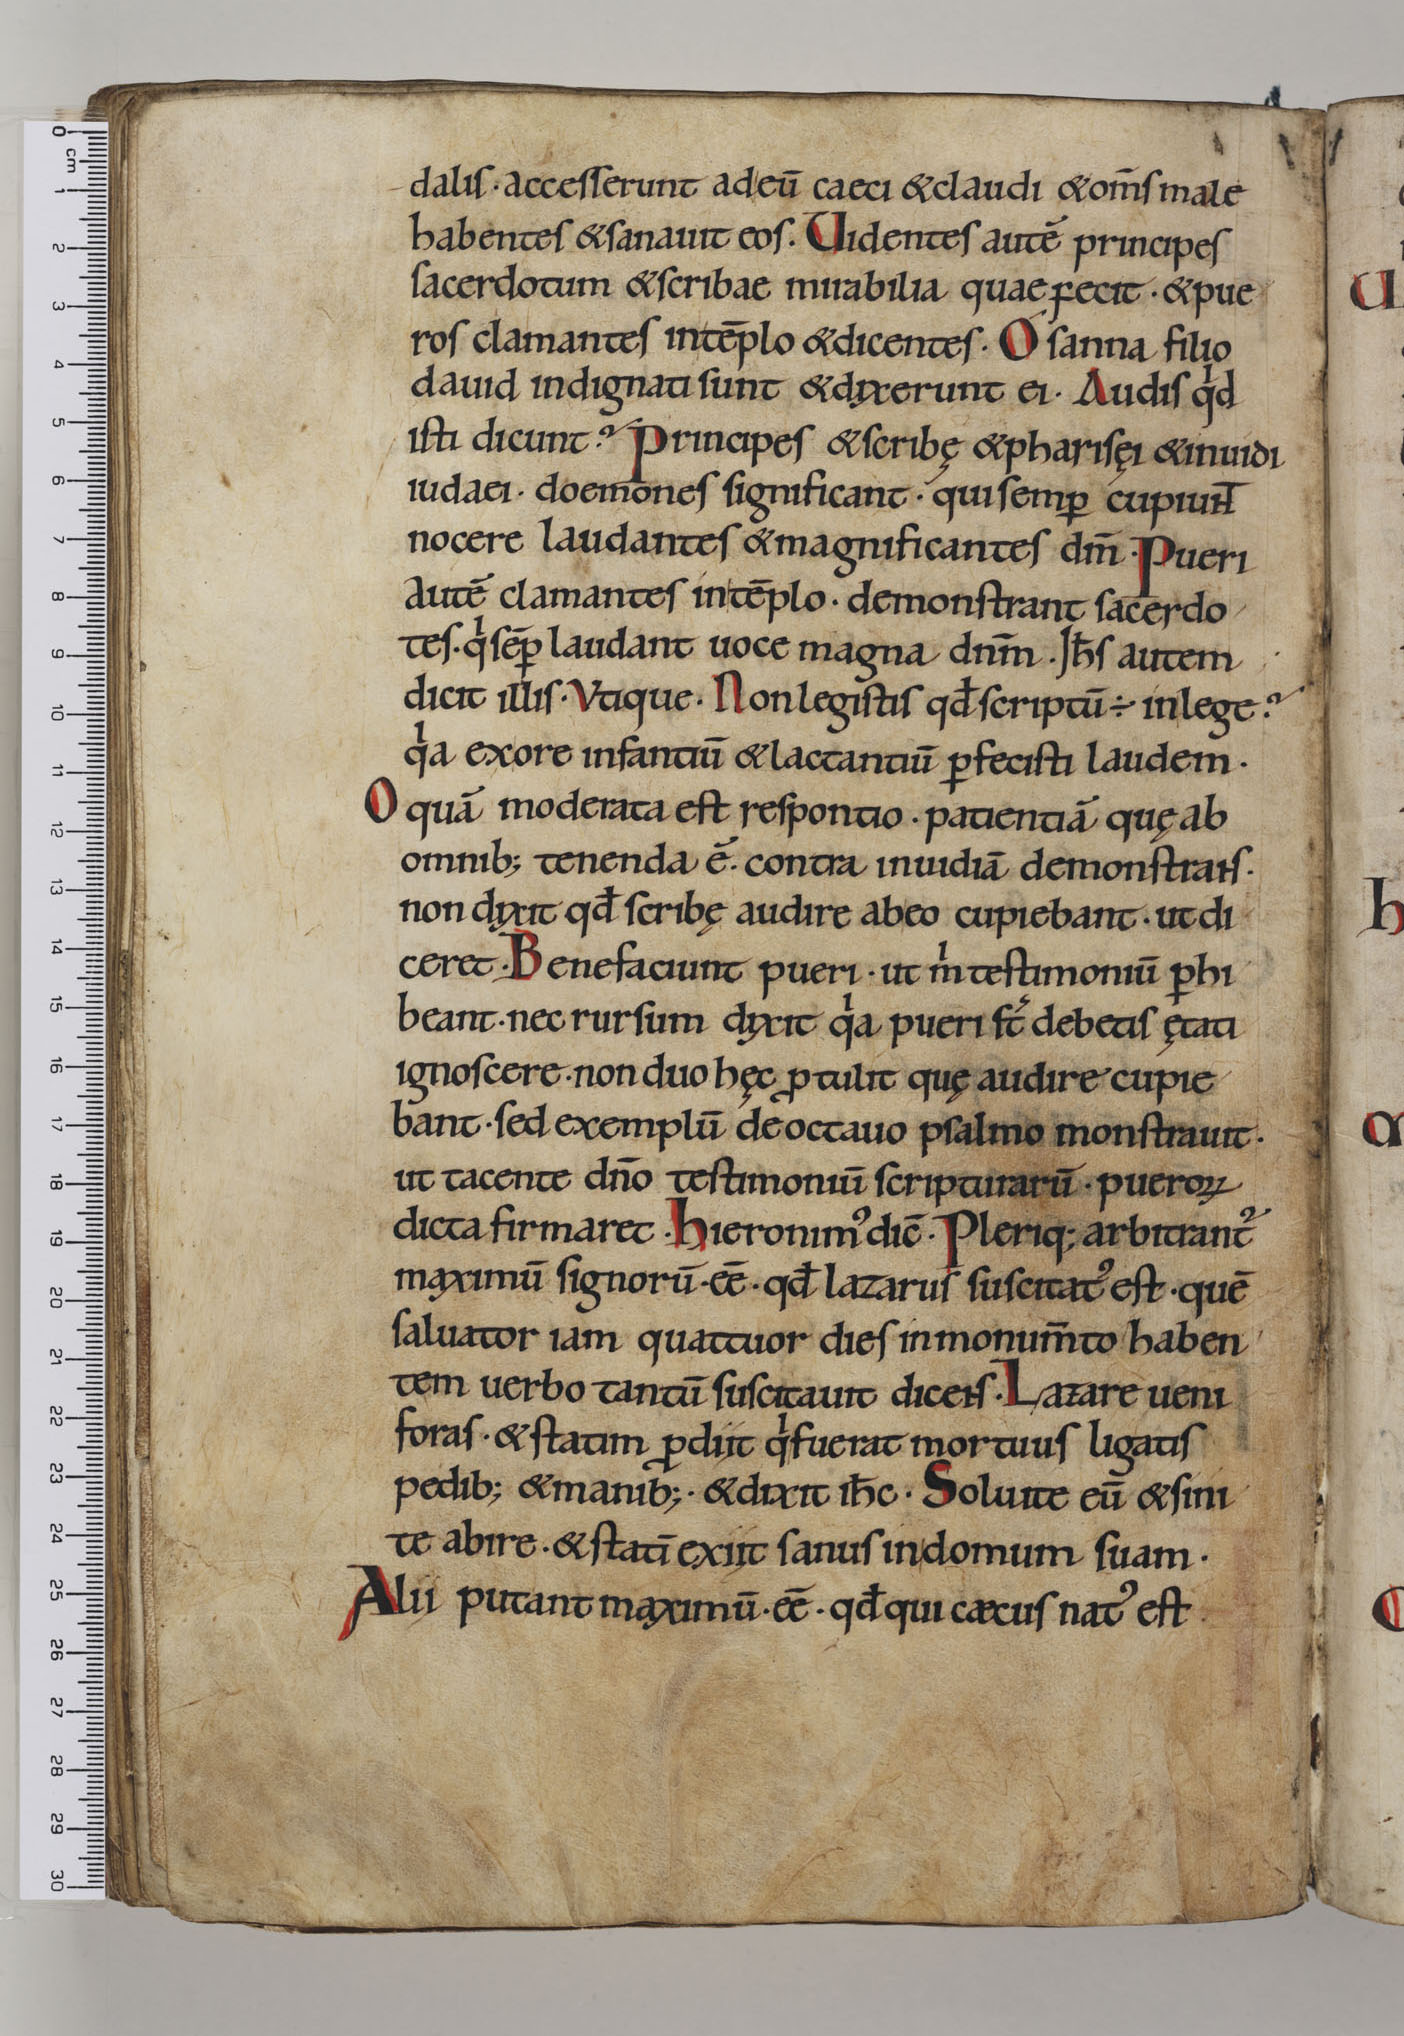 dalis · accesserunt ad eū caeci & claudi & om̄s male
habentes & sanauit eos. Uidentes autē principes
sacerdotum & scribae mirabilia quae fecit · & pue
ros clamantes intēplo & dicentes · O sanna filio
dauid indignati sunt & dixerunt ei · Audis qͥd
isti dicunt? Principes & scribę & pharisęi & inuidi
iudaei · doemones significant · qui semꝑ cupiunt
nocere laudantes & magnificantes dm̄ · Pueri
autē clamantes intēplo · demonstrant sacerdo
tes · qͥ sēꝑ laudant uoce magna dnm̄ · Jħs autem
dicit illis · Vtique · Non legistis qđ scriptū ÷ in lege?
qͥa ex ore infantiū & lactantiū ꝑfecisti laudem ·
O quā moderata est respontio · patientiā quę ab
omnib; tenenda ē · contra inuidiā demonstrans ·
non dixit qđ scribę audire ab eo cupiebant · ut di
ceret · Bene faciunt pueri · ut mͥ testimoniū ꝑhi
beant · nec rursum dixit qͥa pueri st̄ debetis ętati
ignoscere · non duo hęc ꝓtulit quę audire cupie
bant · sed exemplū de octauo psalmo monstrauit ·
ut tacente dn̄o testimoniū scripturarū · pueroꝝ
dicta firmaret · hieronimꝰ dic̄ · Pleriq; arbitrant᷑
maximū signorū · eē · qđ lazarus suscitatꝰ est · quē
saluator iam quattuor dies in monum̄to haben
tem uerbo tantū suscitauit dicens · Lazare ueni
foras · & statim ꝓdiit qͥ fuerat mortuus ligatis
pedib; & manib; · & dixit iħc · Soluite eū & sini
te abire · & statī exiit sanus in domum suam ·
Alii putant maximū · eē · qđ qui cæcus natꝰ est